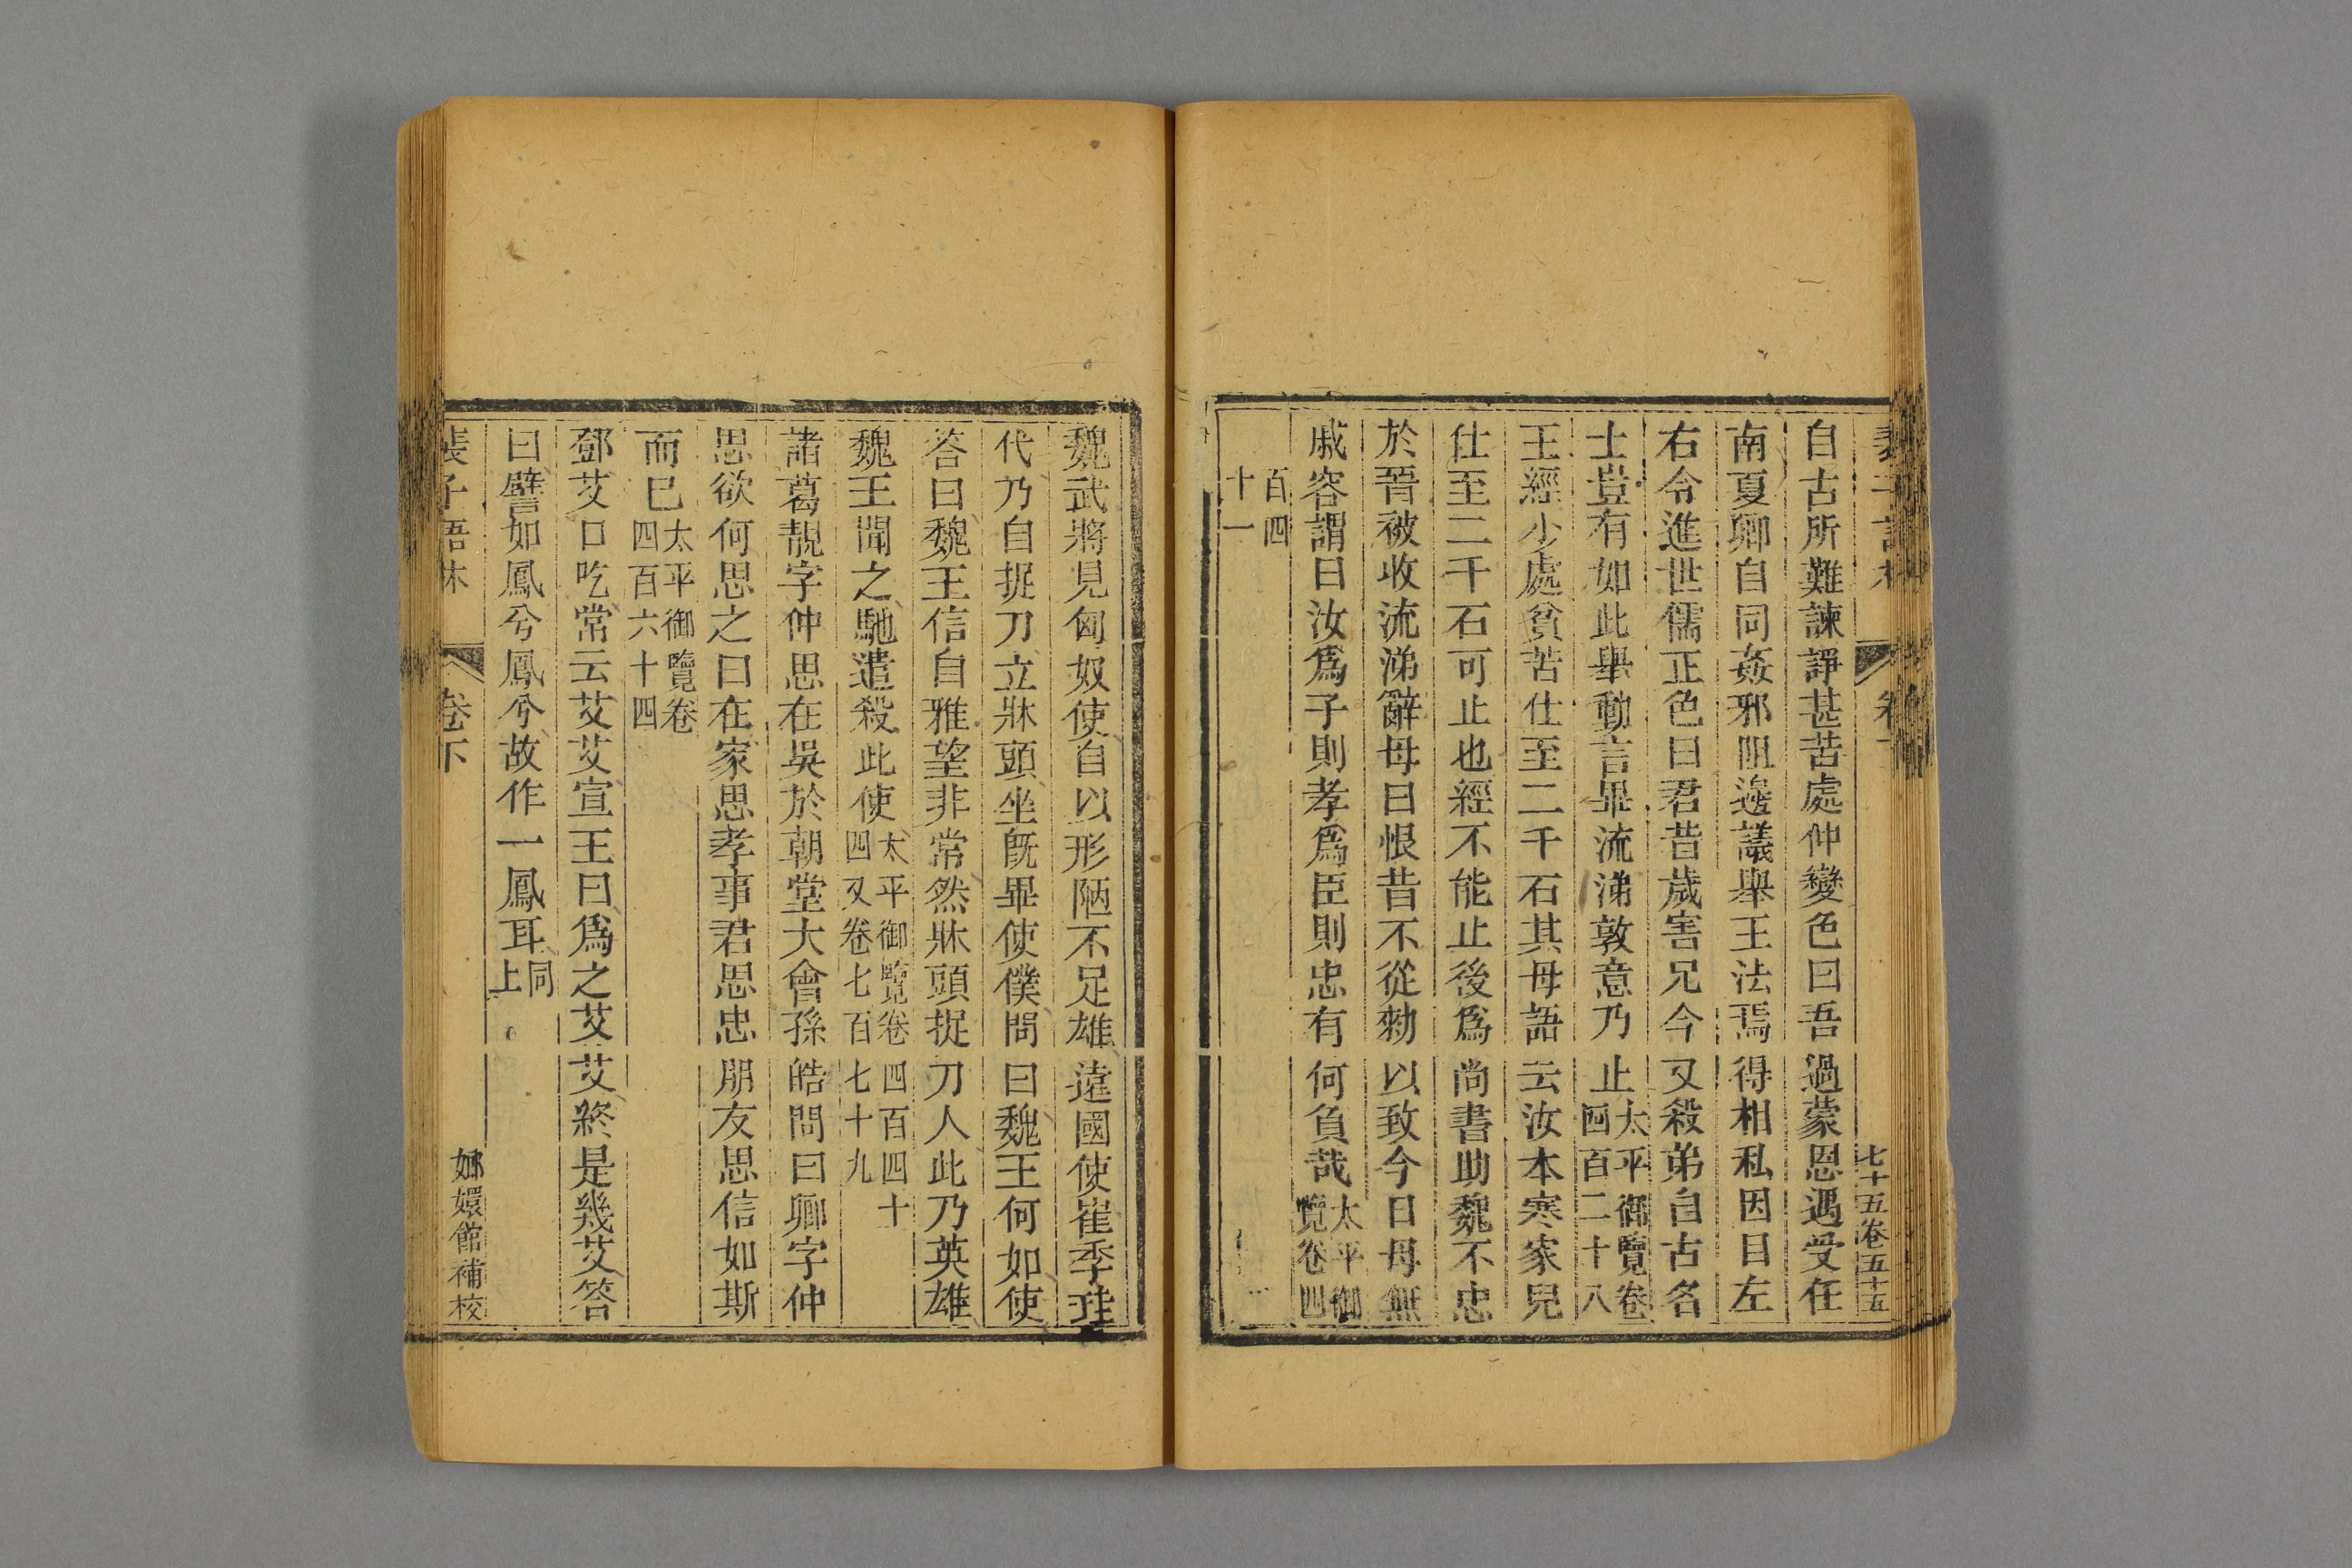 七十五卷五十五
自古所難諫諍甚苦處仲變色曰吾過蒙恩遇受任
南夏卿自同姦邪阻遏議舉王法焉得相私因目左
右令進世儒正色曰君昔歲害兄今又殺弟自古名
士豈有如此舉動言畢流涕敦意乃止太平御覽卷
四百二十八
王經少處貧苦仕至二千石其母語云汝本寒家兒
仕至二千石可止也經不能止後爲尚書助魏不忠
於晉被收流涕辭母曰恨昔不從勑以致今日母無
戚容謂曰汝爲子則孝爲臣則忠有何負哉太平御
覽卷四
百四
十一
魏武將見匈奴使自以形陋不足雄遠國使崔季珪
代乃自捉刀立牀頭坐旣畢使僕問曰魏王何如使
答曰魏王信自雅望非常然牀頭捉刀人此乃英雄
魏王聞之馳遣殺此使太平御覽卷四百四十
四又卷七百七十九
諸葛靚字仲思在吳於朝堂大會孫皓問曰卿字仲
思欲何思之曰在家思孝事君思忠朋友思信如斯
而已太平御覽卷
四百六十四
鄧艾口吃常云艾艾宣王曰爲之艾艾終是幾艾答
曰譬如鳳兮鳳兮故作一鳳耳同
上
裴子語林 卷下
嫏嬛館補校